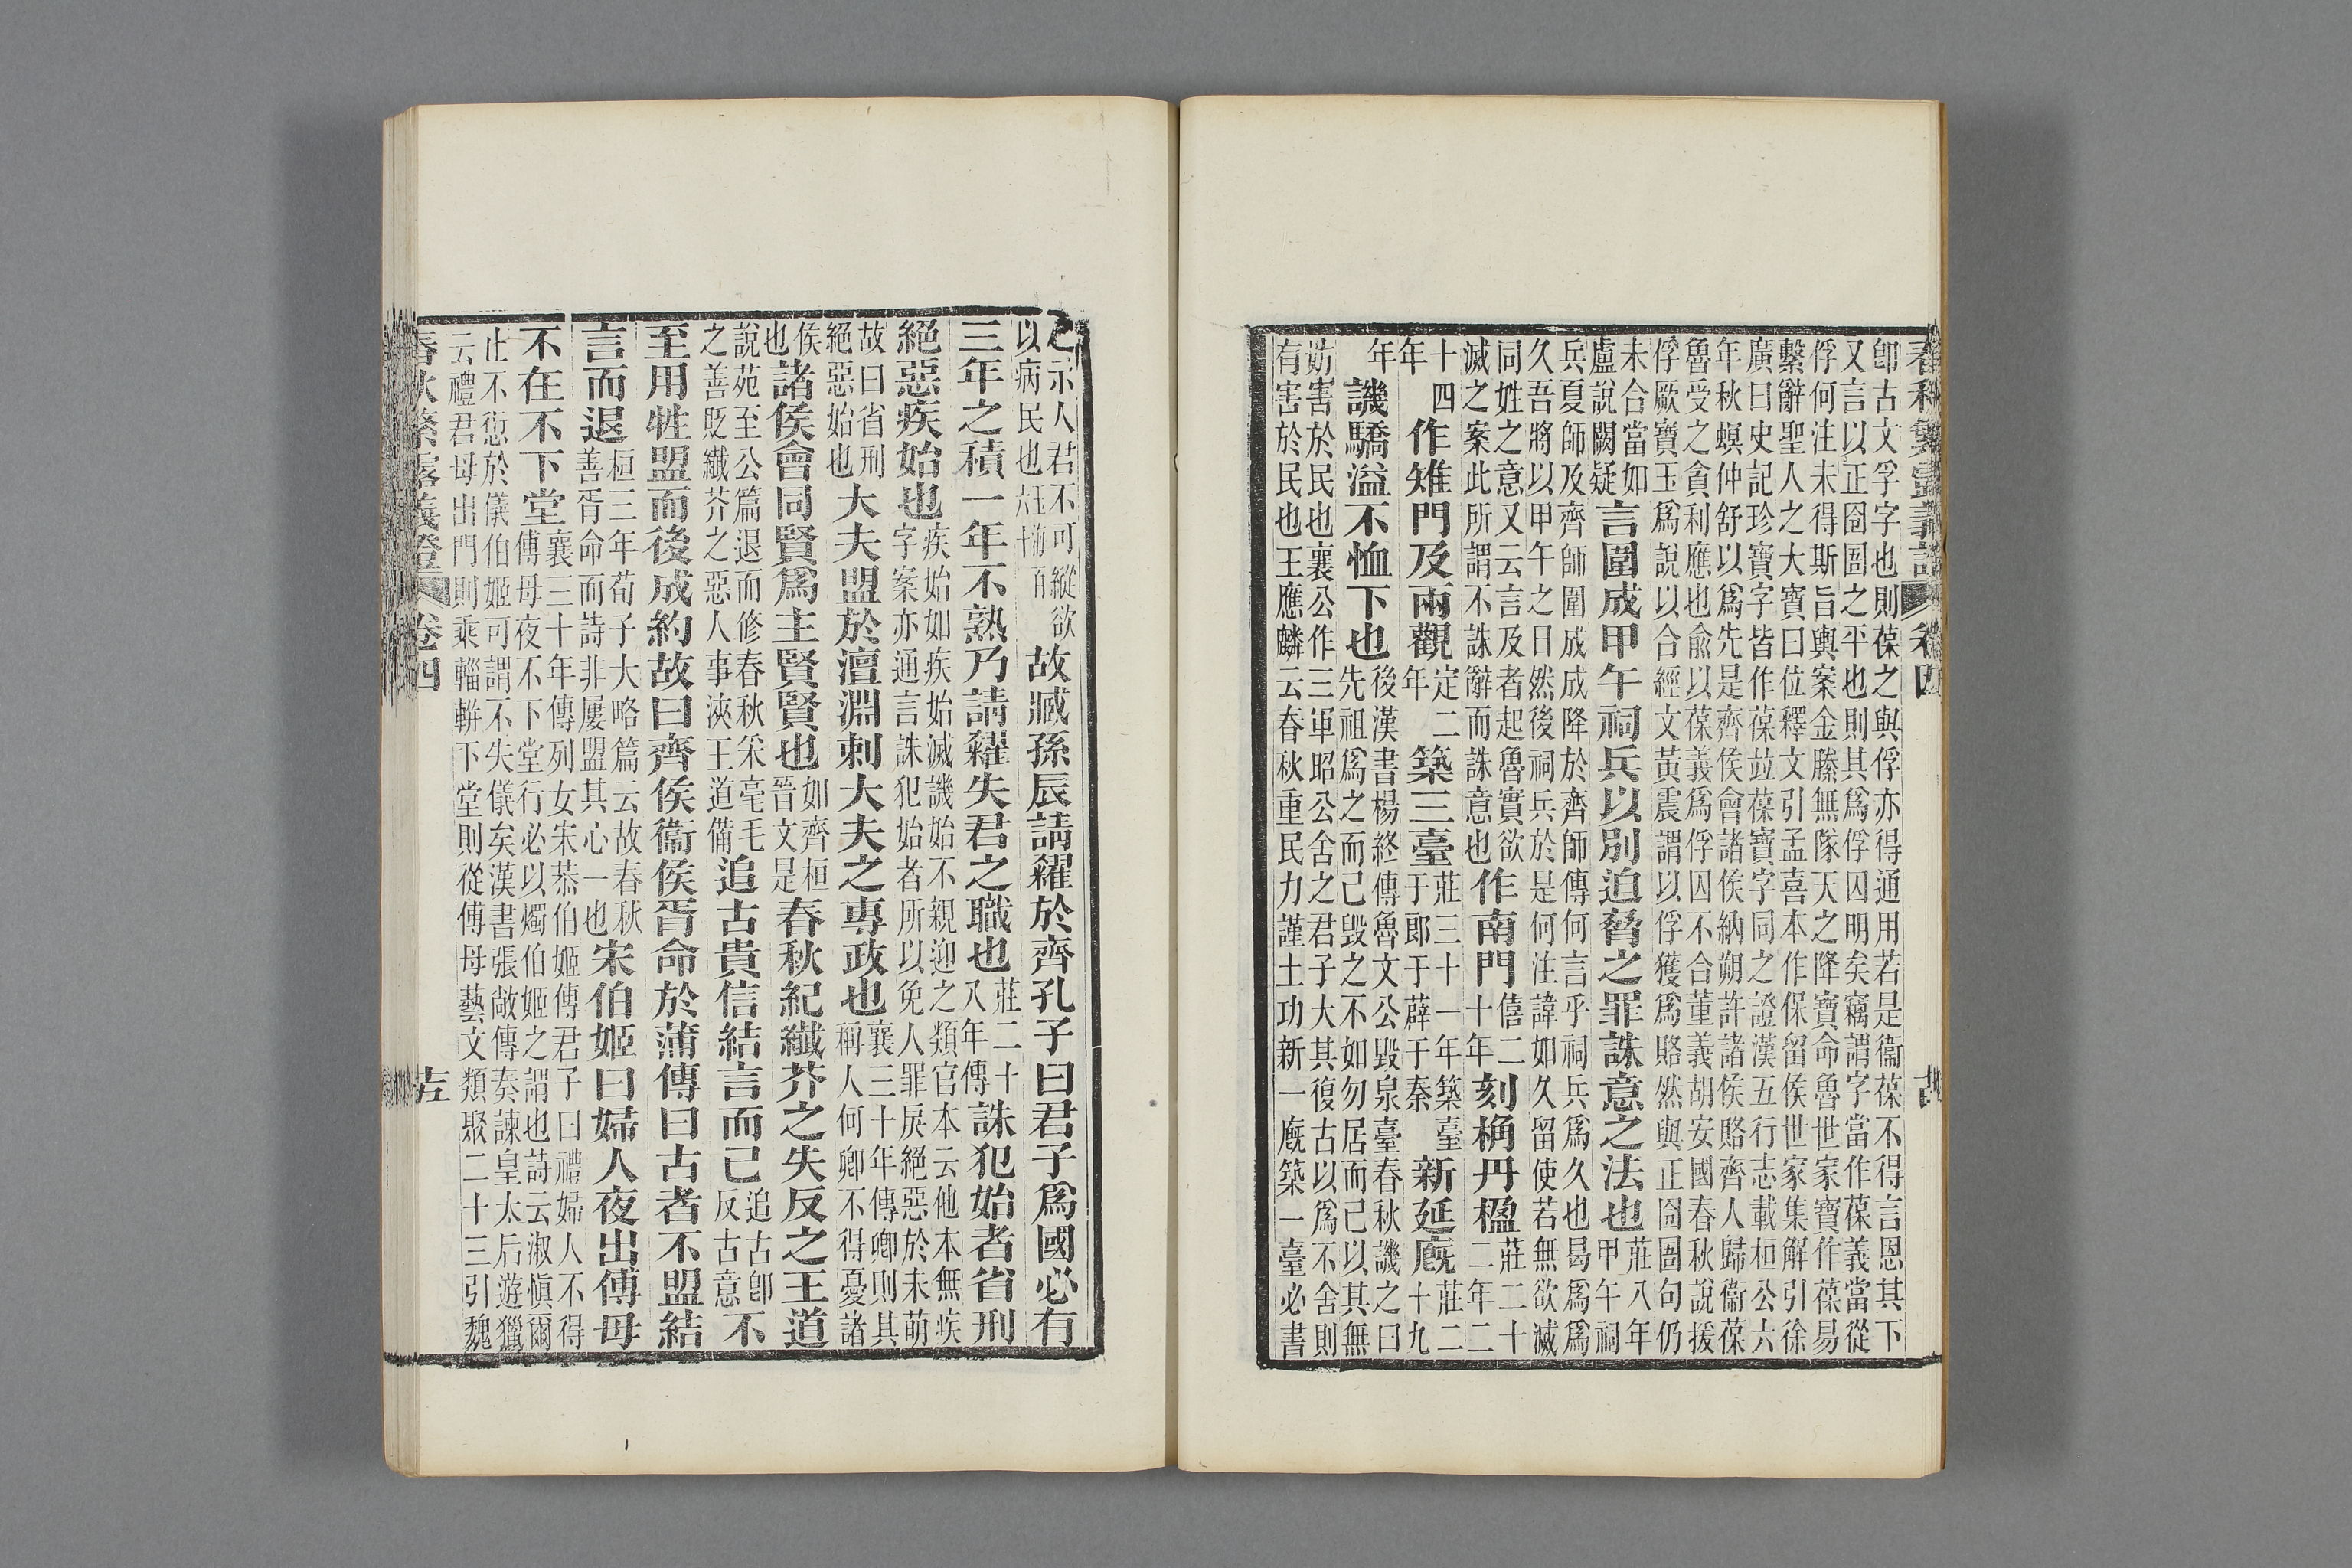 春秋繁露義證 卷四 十四
卽古文孚字也則葆之與俘亦得通用若是衞葆不得言恩其下
又言以正囹圄之平也則其爲俘囚明矣竊謂字當作葆義當從
俘何注未得斯旨輿案金縢無隊天之降寶命魯世家寶作葆易
繫辭聖人之大寶曰位釋文引孟喜本作保留侯世家集解引徐
廣曰史記珍寶字皆作葆竝葆寶字同之證漢五行志載桓公六
年秋螟仲舒以爲先是齊侯會諸侯納朔許諸侯賂齊人歸衞葆
魯受之貪利應也兪以葆義爲俘囚不合董義胡安國春秋說援
俘厥寶玉爲說以合經文黃震謂以俘獲爲賂然與正囹圄句仍
未合當如盧說闕疑言圍成甲午祠兵以別迫脅之罪誅意之法也莊八年甲午祠
兵夏師及齊師圍成成降於齊師傳何言乎祠兵爲久也曷爲爲
久吾將以甲午之日然後祠兵於是何注諱如久留使若無欲滅
同姓之意又云言及者起魯實欲滅之案此所謂不誅辭而誅意也作南門僖二十年刻桷丹楹莊二十二年二
十四年作雉門及兩觀定二年築三臺莊三十一年築臺于郎于薛于秦新延廐莊二十九
年譏驕溢不恤下也後漢書楊終傳魯文公毀泉臺春秋譏之曰先祖爲之而己毀之不如勿居而已以其無
妨害於民也襄公作三軍昭公舍之君子大其復古以爲不舍則
有害於民也王應麟云春秋重民力謹土功新一廐築一臺必書
之示人君不可縱欲以病民也故臧孫辰請糴於齊孔子曰君子爲國必有
三年之積一年不熟乃請糴失君之職也莊二十八年傳誅犯始者省刑
絕惡疾始也疾始如疾始滅譏始不親迎之類官本云他本無疾字案亦通言誅犯始者所以免人罪戾絕惡於未萌
故曰省刑絕惡始也大夫盟於澶淵刺大夫之專政也襄三十年傳卿則其稱人何卿不得憂諸
侯也諸侯會同賢爲主賢賢也如齊桓晉文是春秋紀纖芥之失反之王道
說苑至公篇退而修春秋采毫毛之善貶纖芥之惡人事浹王道備追古貴信結言而已追古卽反古意不
至用牲盟而後成約故曰齊侯衞侯胥命於蒲傳曰古者不盟結
言而退桓三年荀子大略篇云故春秋善胥命而詩非屢盟其心一也宋伯姬曰婦人夜出傅母
不在不下堂襄三十年傳列女宋恭伯姬傳君子曰禮婦人不得傅母夜不下堂行必以燭伯姬之謂也詩云淑愼爾
止不愆於儀伯姬可謂不失儀矣漢書張敞傳奏諫皇太后遊獵
云禮君母出門則乘輜軿下堂則從傅母藝文類聚二十三引魏
春秋繁露義證 卷四 十五